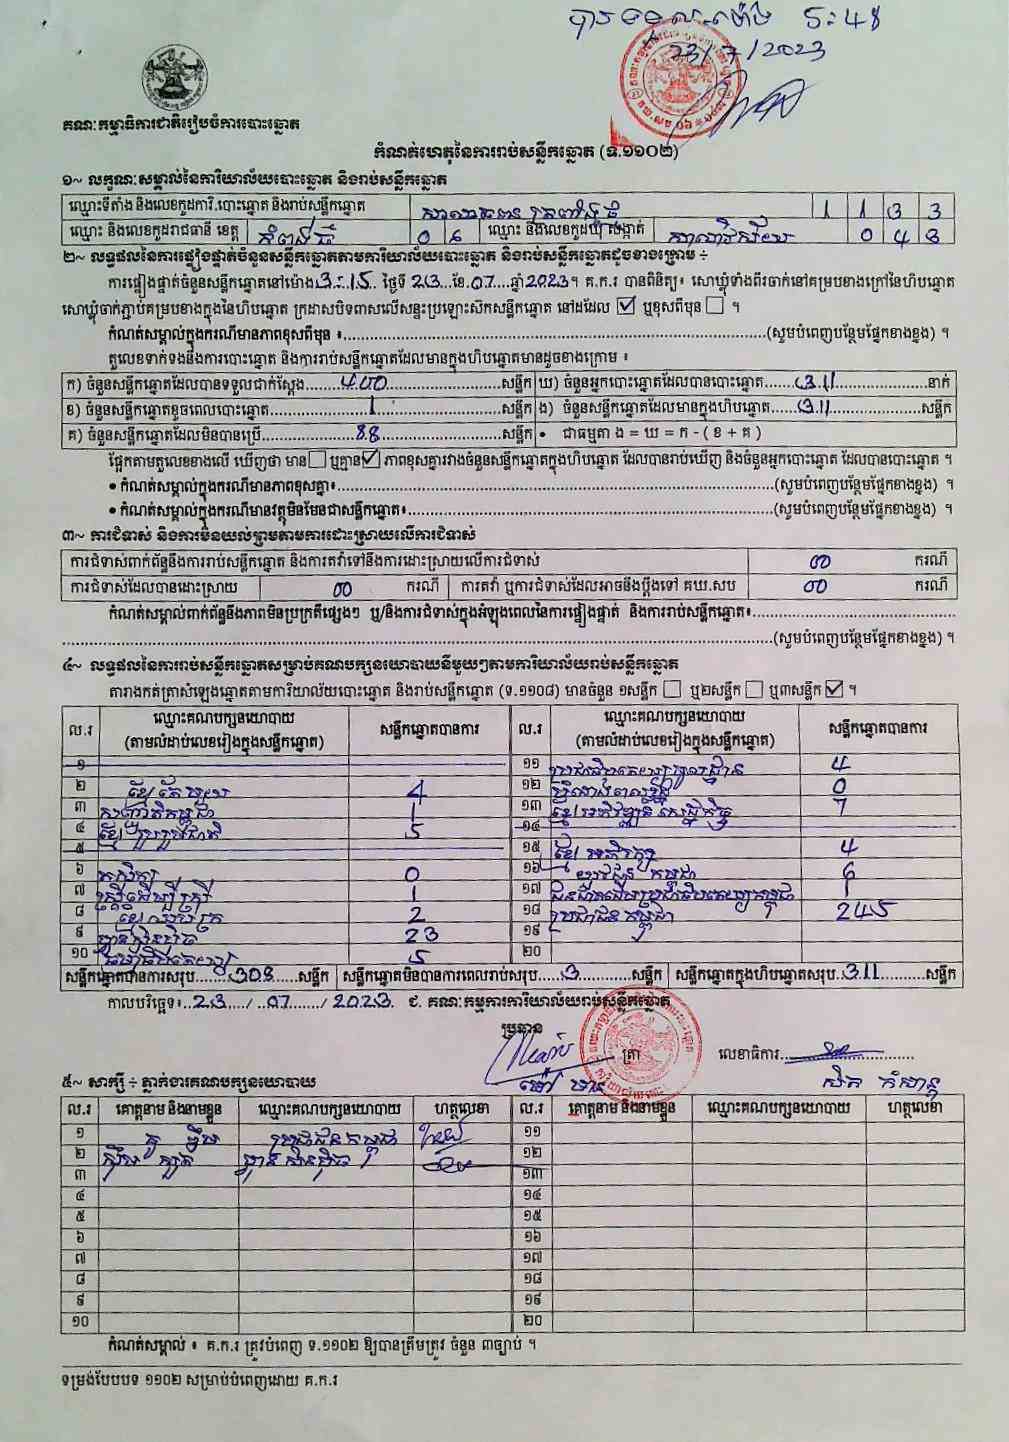 បានទទួលម៉ោង 5:48
23/7/2023
គណៈកម្មាធិការជាតិរៀបចំការបោះឆ្នោត
កំណត់ហេតុនៃការរាប់សន្លឹកឆ្នោត (ទ.១១០២)
១~ លក្ខណៈសម្គាល់នៃការិយាល័យបោះឆ្នោត និងរាប់សន្លឹកឆ្នោត
ឈ្មោះទីតាំង និងលេខកូដការិ.បោះឆ្នោត និងរាប់សន្លឹកឆ្នោត 1 1 3 3
ឈ្មោះ និងលេខកូដរាជធានី ខេត្ត កំពង់ធំ 0 6 ឈ្មោះ និងលេខកូដឃុំ សង្កាត់ សាលាវិស័យ 0 4 8
២~ លទ្ធផលនៃការផ្ទៀងផ្ទាត់ចំនួនសន្លឹកឆ្នោតតាមការិយាល័យបោះឆ្នោត និងរាប់សន្លឹកឆ្នោតដូចខាងក្រោម ÷
ការផ្ទៀងផ្ទាត់ចំនួនសន្លឹកឆ្នោតនៅម៉ោង 3:15 ថ្ងៃទី 23 ខែ 07 ឆ្នាំ 2023។ គ.ក.រ បានពិនិត្យ៖ សោឃ្លុំទាំងពីរចាក់នៅគម្របខាងក្រៅនៃហិបឆ្នោត
សោឃ្លុំចាក់ភ្ជាប់គម្របខាងក្នុងនៃហិបឆ្នោត ក្រដាសបិទពាសលើសន្ទះប្រឡោះស៊កសន្លឹកឆ្នោត នៅដដែល ☑ ឬខុសពីមុន ☐ ។
កំណត់សម្គាល់ក្នុងករណីមានភាពខុសពីមុន ៖ (សូមបំពេញបន្ថែមផ្នែកខាងខ្នង) ។
តួលេខទាក់ទងនឹងការបោះឆ្នោត និងការរាប់សន្លឹកឆ្នោតដែលមានក្នុងហិបឆ្នោតមានដូចខាងក្រោម ៖
ក) ចំនួនសន្លឹកឆ្នោតដែលបានទទួលជាក់ស្តែង 400 សន្លឹក ឃ) ចំនួនអ្នកបោះឆ្នោតដែលបានបោះឆ្នោត 311 នាក់
ខ) ចំនួនសន្លឹកឆ្នោតខូចពេលបោះឆ្នោត 1 សន្លឹក ង) ចំនួនសន្លឹកឆ្នោតដែលមានក្នុងហិបឆ្នោត 311 សន្លឹក
គ) ចំនួនសន្លឹកឆ្នោតដែលមិនបានប្រើ 88 សន្លឹក • ជាធម្មតា ង = ឃ = ក - ( ខ + គ )
ផ្អែកតាមតួលេខខាងលើ ឃើញថា មាន ☐ ឬគ្មាន ☑ ភាពខុសគ្នារវាងចំនួនសន្លឹកឆ្នោតក្នុងហិបឆ្នោត ដែលបានរាប់ឃើញ និងចំនួនអ្នកបោះឆ្នោត ដែលបានបោះឆ្នោត ។
• កំណត់សម្គាល់ក្នុងករណីមានភាពខុសគ្នា៖ (សូមបំពេញបន្ថែមផ្នែកខាងខ្នង) ។
• កំណត់សម្គាល់ក្នុងករណីមានវត្ថុមិនមែនជាសន្លឹកឆ្នោត៖ (សូមបំពេញបន្ថែមផ្នែកខាងខ្នង) ។
៣~ ការជំទាស់ និងការមិនយល់ព្រមតាមការដោះស្រាយលើការជំទាស់
ការជំទាស់ពាក់ព័ន្ធនឹងការរាប់សន្លឹកឆ្នោត និងការតវ៉ាទៅនឹងការដោះស្រាយលើការជំទាស់ 00 ករណី
ការជំទាស់ដែលបានដោះស្រាយ 00 ករណី ការតវ៉ា ឬការជំទាស់ដែលអាចនឹងប្តឹងទៅ គឃ.សប 00 ករណី
កំណត់សម្គាល់ពាក់ព័ន្ធនឹងភាពមិនប្រក្រតីផ្សេងៗ ឬ/និងការជំទាស់ក្នុងអំឡុងពេលនៃការផ្ទៀងផ្ទាត់ និងការរាប់សន្លឹកឆ្នោត៖
(សូមបំពេញបន្ថែមផ្នែកខាងខ្នង) ។
៤~ លទ្ធផលនៃការរាប់សន្លឹកឆ្នោតសម្រាប់គណបក្សនយោបាយនីមួយៗតាមការិយាល័យរាប់សន្លឹកឆ្នោត
តារាងកត់ត្រាសំឡេងឆ្នោតតាមការិយាល័យបោះឆ្នោត និងរាប់សន្លឹកឆ្នោត (ទ.១១០៨) មានចំនួន ១សន្លឹក ☐ ឬ២សន្លឹក ☐ ឬ៣សន្លឹក ☑ ។
ល.រ ឈ្មោះគណបក្សនយោបាយ (តាមលំដាប់លេខរៀងក្នុងសន្លឹកឆ្នោត) សន្លឹកឆ្នោតបានការ ល.រ ឈ្មោះគណបក្សនយោបាយ (តាមលំដាប់លេខរៀងក្នុងសន្លឹកឆ្នោត) សន្លឹកឆ្នោតបានការ
១ ១១ 4
២ ខ្មែរតែមួយ 4 ១២ 0
៣ សញ្ជាតិកម្ពុជា 1 ១៣ ខ្មែរអភិវឌ្ឍន៍សេដ្ឋកិច្ច 7
៤ ខ្មែររួបរួមជាតិ 5 ១៤
៥ ១៥ ខ្មែរអភិរក្ស 4
៦ កសិករ 0 ១៦ យុវជនកម្ពុជា 6
៧ ស្ត្រីដើម្បីស្ត្រី 1 ១៧ ជនជាតិដើមប្រជាធិបតេយ្យកម្ពុជា 1
៨ ខ្មែរឈប់ក្រ 2 ១៨ ប្រជាជនកម្ពុជា 245
៩ ហ្វ៊ុនស៊ិនប៉ិច 23 ១៩
១០ ធម្មាធិបតេយ្យ 5 ២០
សន្លឹកឆ្នោតបានការសរុប 308 សន្លឹក សន្លឹកឆ្នោតមិនបានការពេលរាប់សរុប 3 សន្លឹក សន្លឹកឆ្នោតក្នុងហិបឆ្នោតសរុប 311 សន្លឹក
កាលបរិច្ឆេទ៖ 23 / 07 / 2023 ជ. គណៈកម្មការការិយាល័យរាប់សន្លឹកឆ្នោត
ប្រធាន
ត្រា លេខាធិការ
៥~ សាក្សី ÷ ភ្នាក់ងារគណបក្សនយោបាយ
ល.រ គោត្តនាម និងនាមខ្លួន ឈ្មោះគណបក្សនយោបាយ ហត្ថលេខា ល.រ គោត្តនាម និងនាមខ្លួន ឈ្មោះគណបក្សនយោបាយ ហត្ថលេខា
១ ប្រជាជនកម្ពុជា ១១
២ ហ្វ៊ុនស៊ិនប៉ិច ១២
៣ ១៣
៤ ១៤
៥ ១៥
៦ ១៦
៧ ១៧
៨ ១៨
៩ ១៩
១០ ២០
កំណត់សម្គាល់ ៖ គ.ក.រ ត្រូវបំពេញ ទ.១១០២ ឱ្យបានត្រឹមត្រូវ ចំនួន ៣ច្បាប់ ។
ទម្រង់បែបបទ ១១០២ សម្រាប់បំពេញដោយ គ.ក.រ